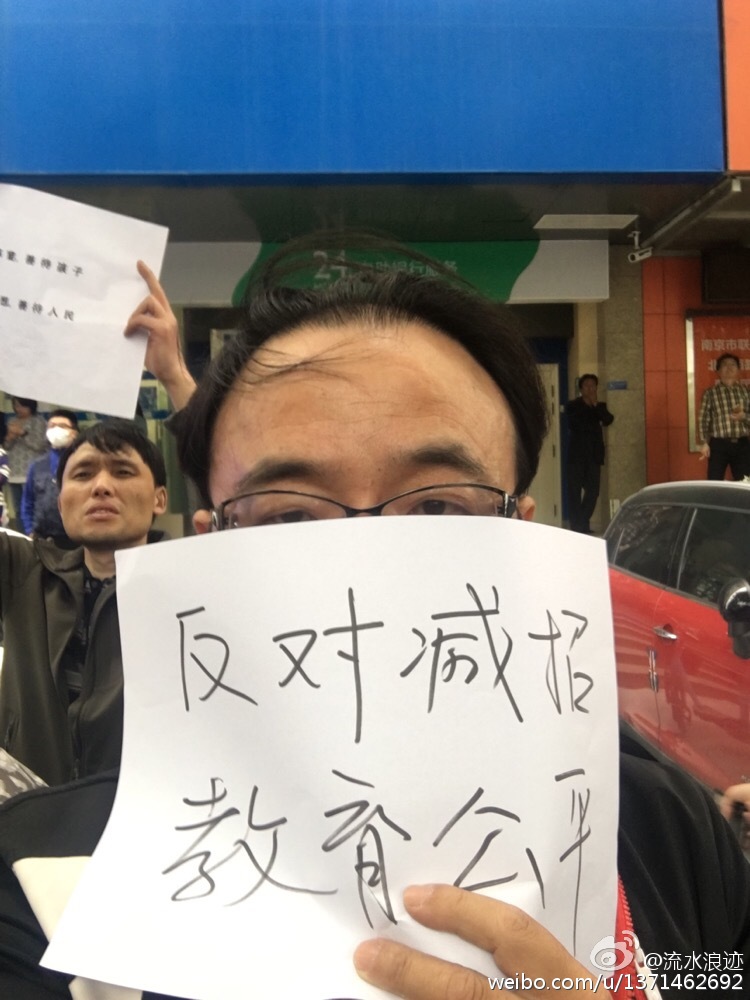 善待孩子
善待人民
24 自助银行服务
反对减招
教育公平
@流水浪迹
weibo.com/u/1371462692